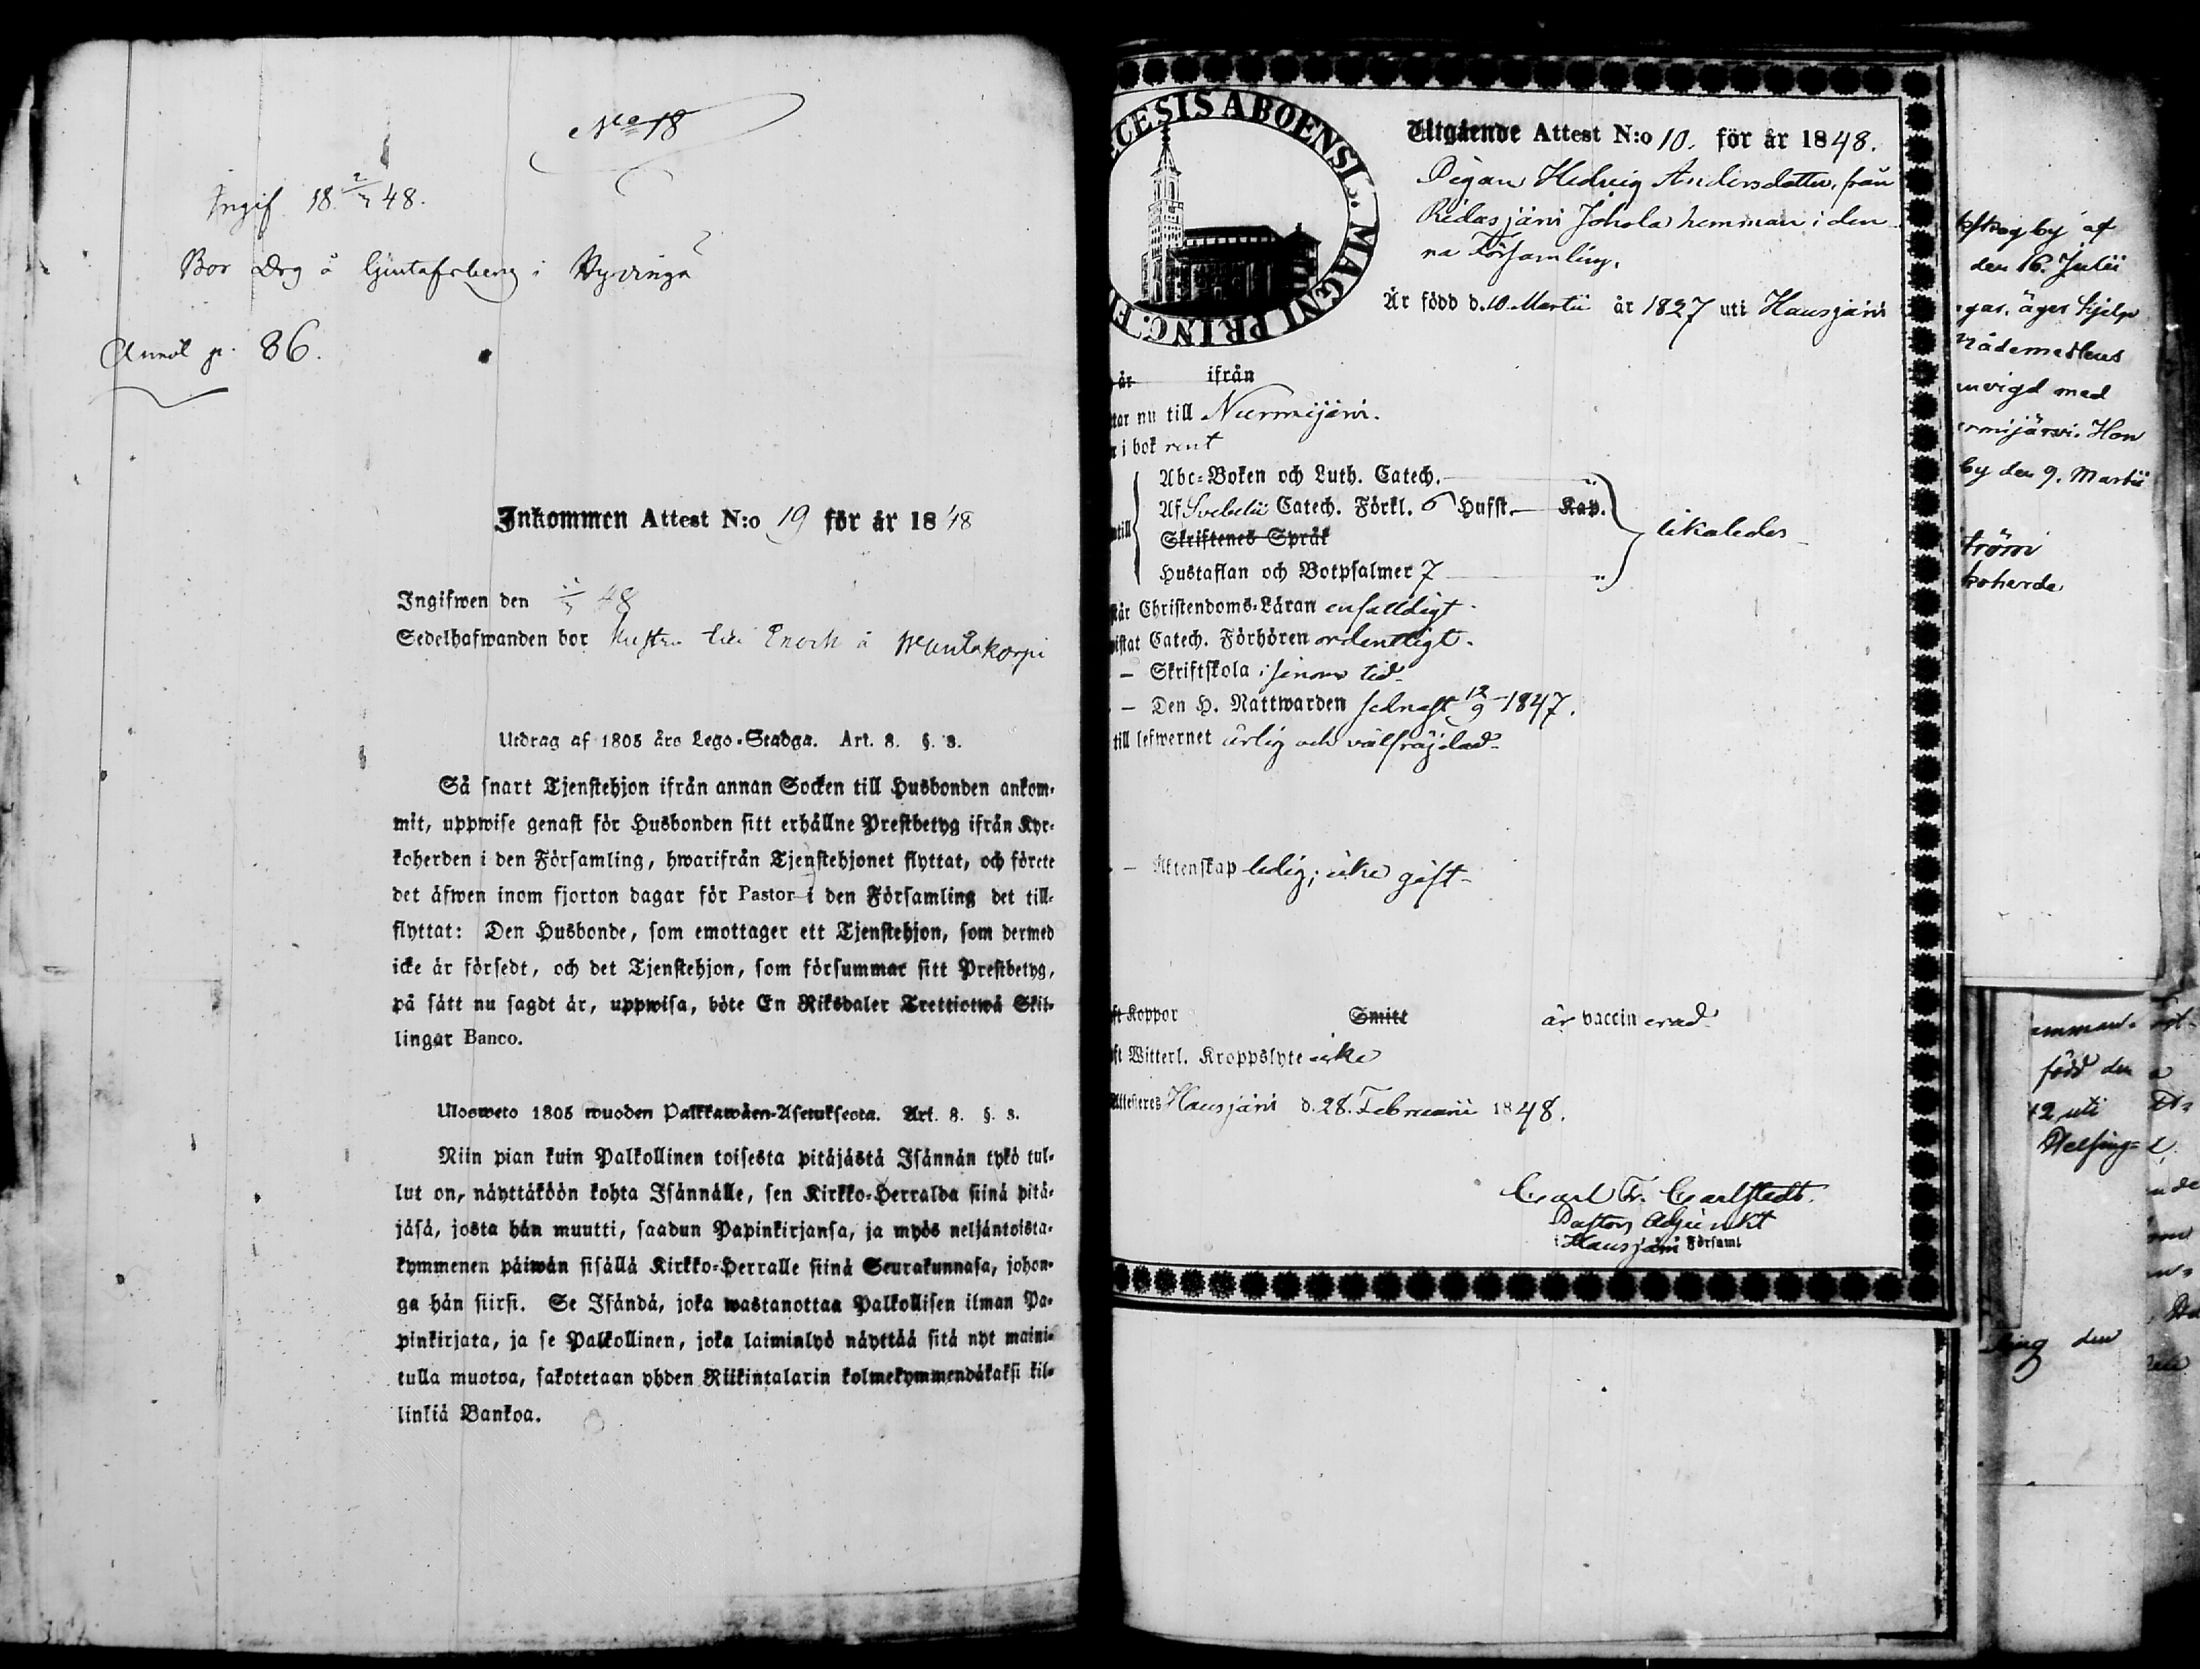 No 18
Ingif 18 2/7 48.
Bor Drg å Gustafsberg i Hyvingä
Annöl p. 86.
Inkommen Attest N:o 19 för år 1848
Ingifwen den 2/7 48
Sedelhafwanden bor Hustru till Enoch å
Utdrag af 1805 års Lego-Stadga. Art. 8. §. 3.
Så snart Tjenstehjon ifrån annan Socken till Husbonden ankom-
mit, uppwise genast för Husbonden sitt erhållne Prestbetyg ifrån Kyr-
koherden i den Församling, hwarifrån Tjenstehjonet flyttat, och förete
det äfwen inom fjorton dagar för Pastor i den Församling det till-
flyttat: Den Husbonde, som emottager ett Tjenstehjon, som dermed
icke är försedt, och det Tjenstehjon, som försummar sitt Prestbetyg,
på sätt nu sagdt är, uppwisa, böte En Riksdaler Trettiotwå Skil-
lingar Banco.
Ulosweto 1805 wuoden Palkkawäen-Asetuksesta. Art. 8. §. 3.
Niin pian kuin Palkollinen toisesta pitäjästä Isännän tykö tul-
lut on, näyttäköön kohta Isännälle, sen Kirkko-Herralda siinä pitä-
jäsä, josta hän muutti, saadun Papinkirjansa, ja myös neljäntoista-
kymmenen päiwän sisällä Kirkko-Herralle siinä Seurakunnasa, johon-
ga hän siirsi. Se Isändä, joka wastanottaa Palkollisen ilman Pa-
pinkirjata, ja se Palkollinen, joka laiminlyö näyttää sitä nyt maini-
tulla muotoa, sakotetaan yhden Riikintalarin kolmekymmendäkaksi kil-
linkiä Bankoa.
CESIS ABOENSI. MAGNI PRINC: F
Utgående Attest N:o 10. för år 1848.
Pigan Hedvig Andersdotter, från
Ridasjärvi Johola hemman i den
na Församling.
Är född d. 10 Martii år 1827 uti Hausjärvi
år ifrån
tar nu till Nurmijärvi.
r i bok rent
Abc-Boken och Luth. Catech. "
Af Svebelii Catech. Förkl. 6 Hufst. Kap.
ntill
likaledes
Skriftenes Språk
Hustaflan och Botpsalmer 7 "
står Christendoms-Läran enfaldigt.
wistat Catech. Förhören ordentligt.
– Skriftskola i sinom tid
– Den H. Nattwarden sednast 12/9 1847.
till lefwernet ärlig och välfräjdad
– Äktenskap ledig; icke gift
ft Koppor Smitt är vaccinerad
ft Witterl. Kroppslyte icke
Attesteres Hausjärvi d. 28. Februarii 1848.
Carl Fr. Carlstedt.
Pastors Adjunkt
i Hausjärvi Församl
by af
den 16. Julii
gar, äger hjelp
Nådemedlens
mvigd med
rmijärvi. Hon
by den 9. Martii
tröm
koherde
emman.
född den
42 uti
Helsing-
ling den